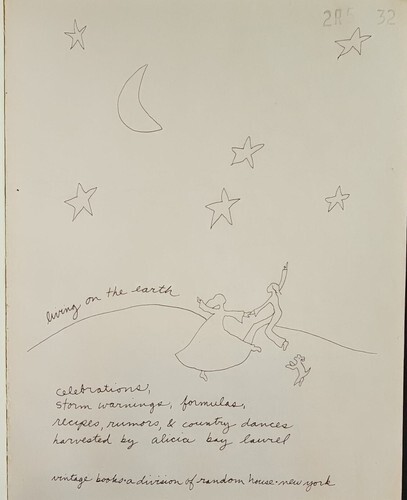 285 32
living on the earth
celebrations,
storm warnings, formulas,
recipes, rumors, & country dances
harvested by alicia bay laurel
vintage books • a division of random house • new york